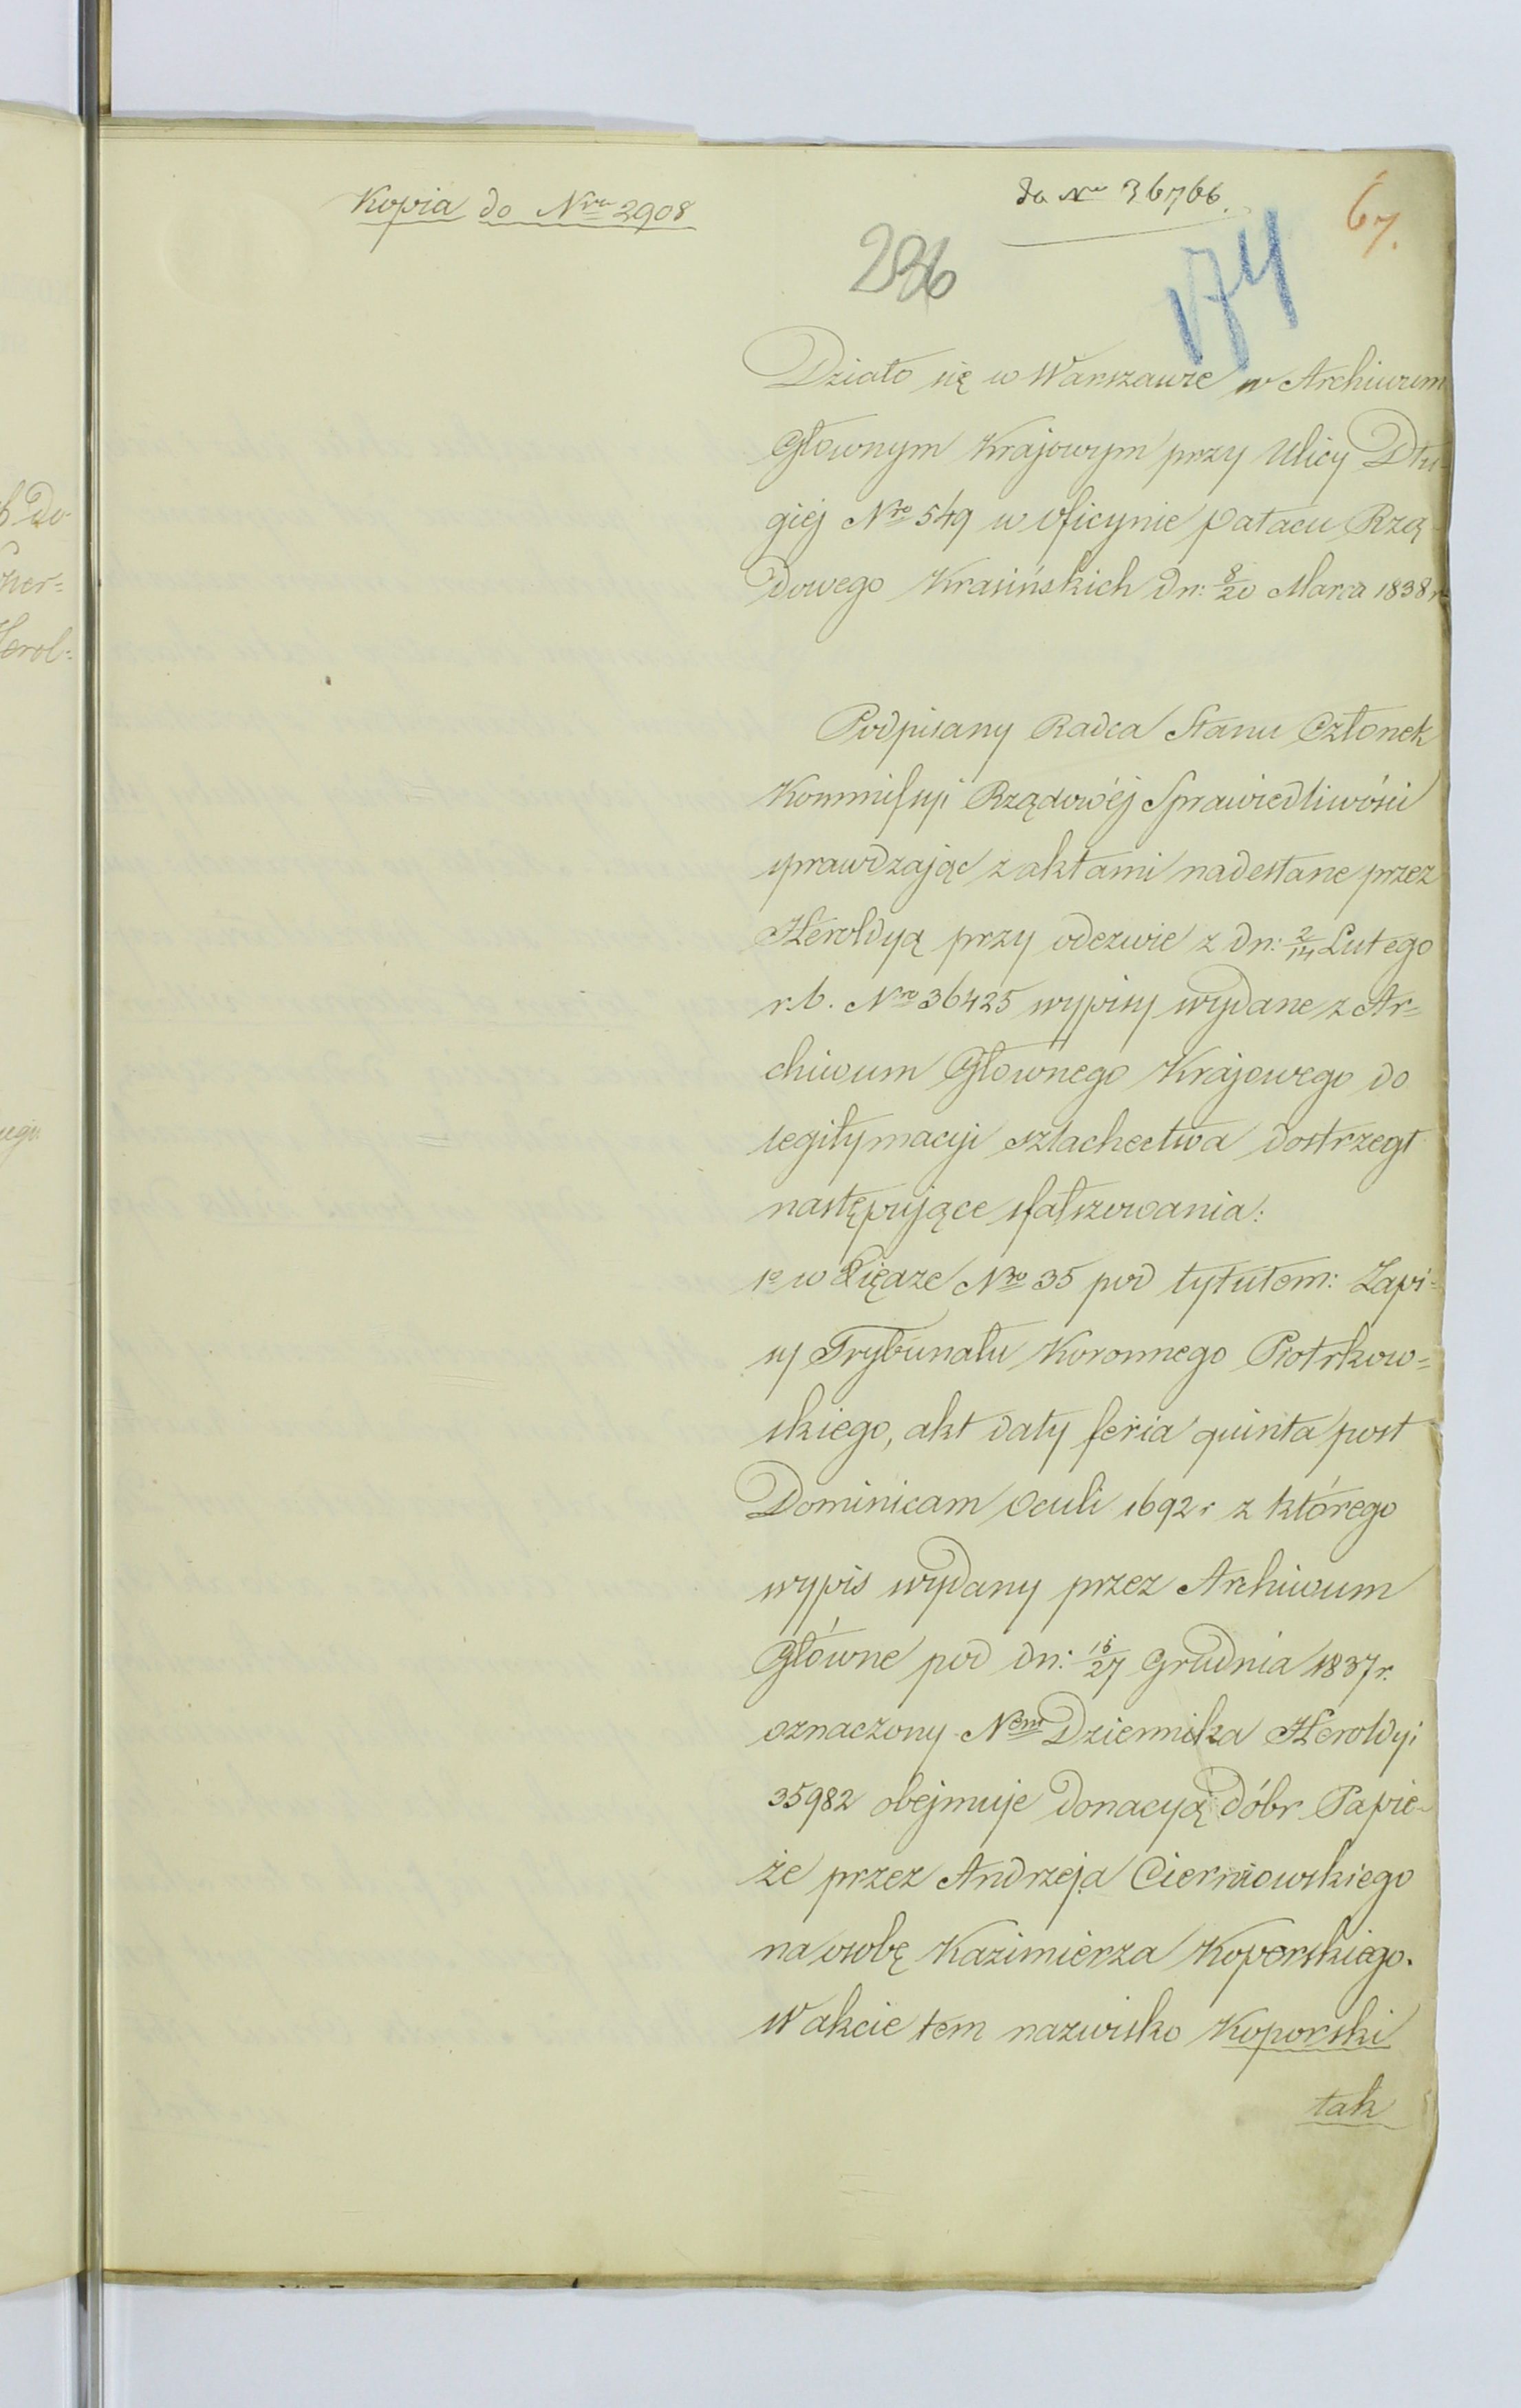 Kopia do Nru 2908
do Nru 36766.
67.
174
Działo się w Warszawie w Archiwum
Głownym Krajowym przy Ulicy Dłu-
giej Nro 549 w Oficynie Pałacu Rzą-
dowego Krasińskich dn: 8/20 Marca 1838 r
Podpisany Radca Stanu Członek
Kommissyi Rządowéj Sprawiedliwości
sprawdzając z aktami nadesłane przez
Heroldyą przy odezwie z dn: 2/14 Lutego
r. b. Nro 36425 wypisy wydane z Ar=
chiwum Głownego Krajowego do
legitymacyi szlachectwa dostrzegł
następujące sfałszowania:
1o w Xiędze Nro 35 pod tytułem: Zapi=
sy Trybunału Koronnego Piotrkow=
skiego, akt daty feria quinta post
Dominicam Oculi 1692 r z którego
wypis wydany przez Archiwum
Główne pod dn: 15/27 Grudnia 1837 r.
oznaczony Nem Dziennika Heroldyi
35982 obejmuje donacyą dóbr Papie-
że przez Andrzeja Cierniowskiego
na osobę Kazimierza Koperskiego.
W akcie tem nazwisko Koporski
tak
b do
Herol=